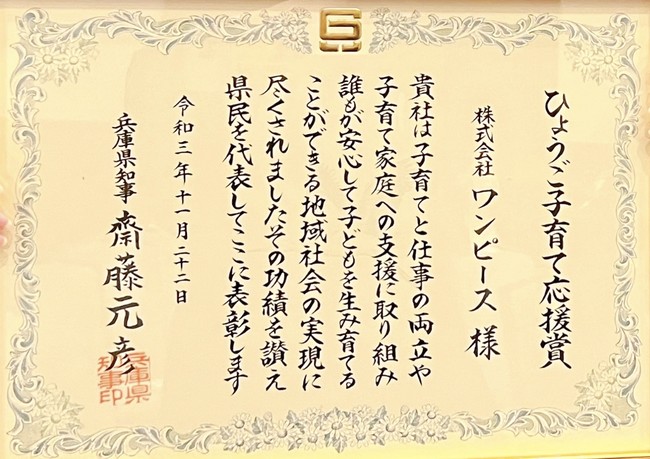 ひょうご子育て応援賞
株式会社 ワンピース 様
貴社は子育てと仕事の両立や
子育て家庭への支援に取り組み
誰もが安心して子どもを生み育てる
ことができる地域社会の実現に
尽くされましたその功績を讃え
県民を代表してここに表彰します
令和三年十一月二十二日
兵庫県知事 齋藤元彦
兵庫県
知事印